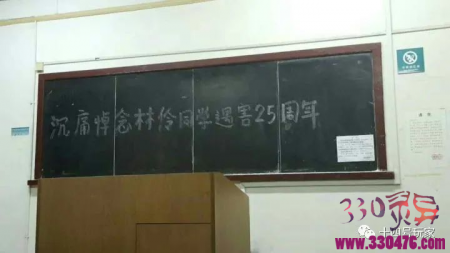 沉痛悼念林伶同学遇害25周年
330灵异
十四号玩家
www.330476.com